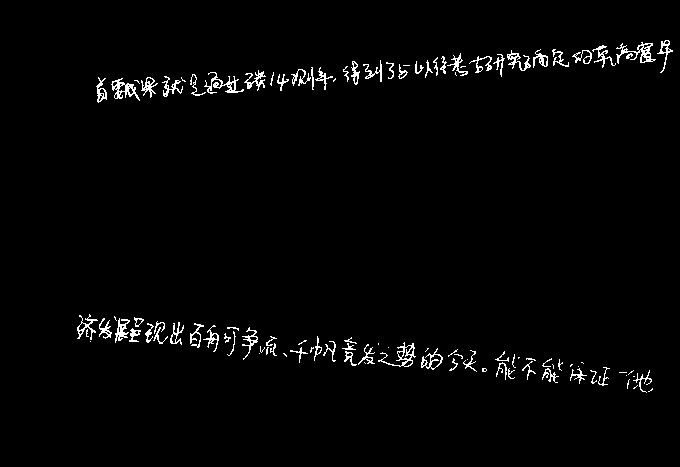 首要成果就是通过碳14测年，得到了与以往考古研究确定的莫高窟早
济发展呈现出百舸争流、千帆竞发之势的今天。能不能保证一些